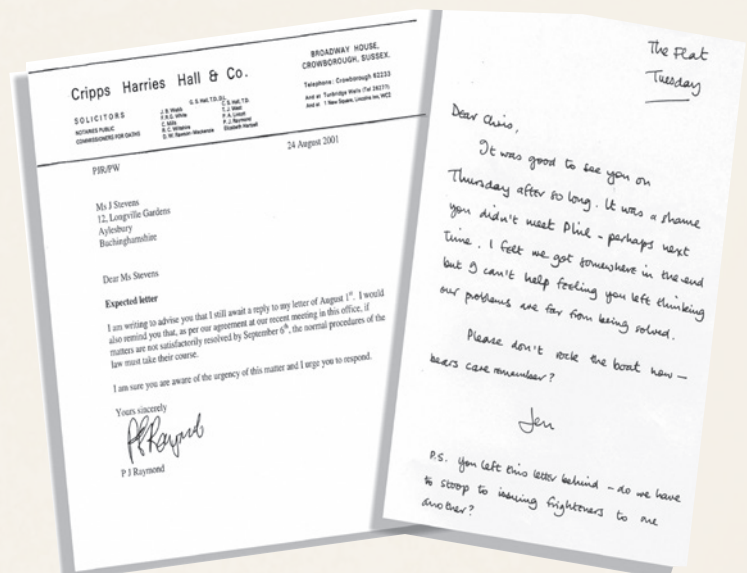 Cripps Harries Hall & Co.
SOLICITORS
NOTARIES PUBLIC
COMMISSIONERS FOR OATHS
G. S. Hall, T.D., D.L.
J. R. Webb
F. R. G. White
C. Mills
R. C. Wiltshire
D. W. Rawson-Mackenzie
C. S. Hall, T.D.
T. J. West
P. A. Linott
P. J. Raymond
Elizabeth Hartwell
BROADWAY HOUSE,
CROWBOROUGH, SUSSEX.
Telephone: Crowborough 62233
And at Tunbridge Wells (Tel 26277)
And at 1 New Square, Lincolns Inn, WC2
PJR/PW
24 August 2001
Ms J Stevens
12, Longville Gardens
Aylesbury
Buchinghamshire
Dear Ms Stevens
Expected letter
I am writing to advise you that I still await a reply to my letter of August 1st. I would
also remind you that, as per our agreement at our recent meeting in this office, if
matters are not satisfactorily resolved by September 6th, the normal procedures of the
law must take their course.
I am sure you are aware of the urgency of this matter and I urge you to respond.
Yours sincerely
PJRaymond
P J Raymond
The Flat
Tuesday
Dear Chris,
It was good to see you on
Thursday after so long. It was a shame
you didn't meet Phil - perhaps next
time. I felt we got somewhere in the end
but I can't help feeling you left thinking
our problems are far from being solved.
Please don't rock the boat now -
bears care remember?
Jen
P.S. you left this letter behind - do we have
to stoop to issuing frighteners to one
another?